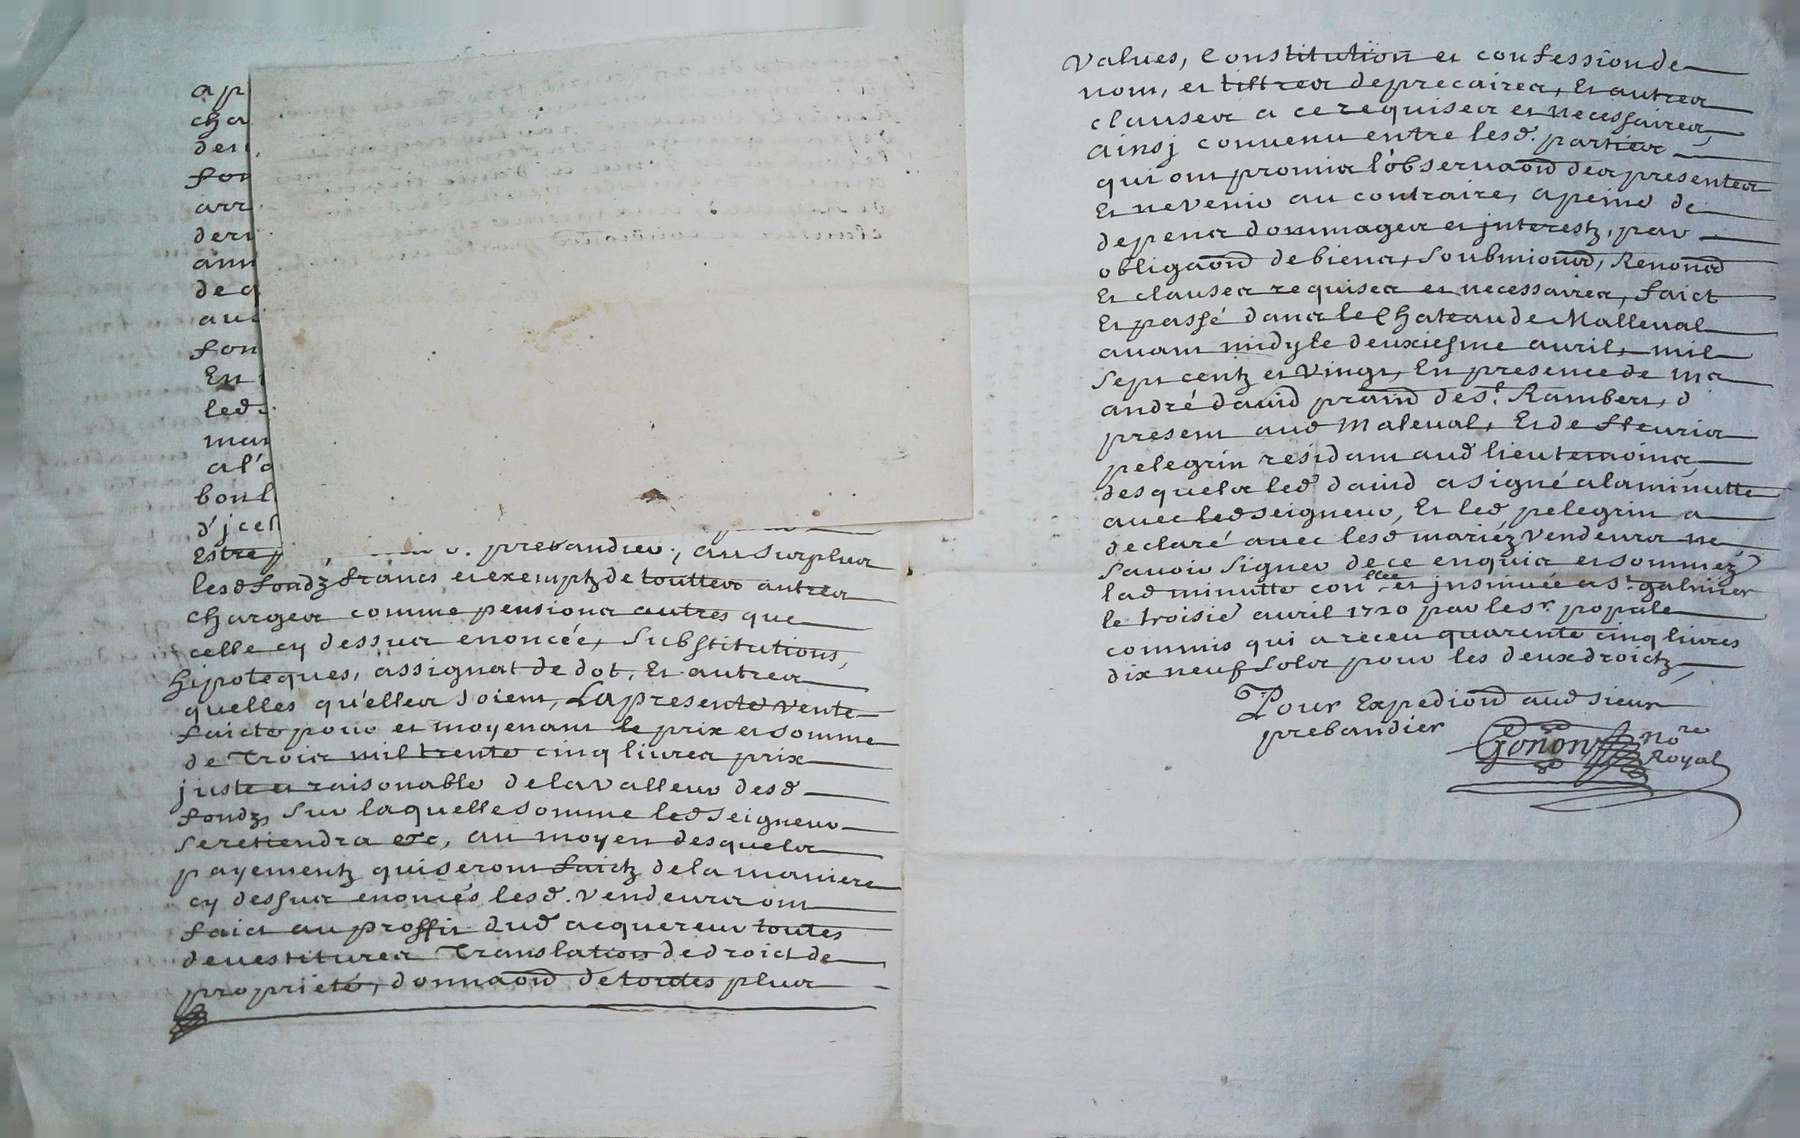 ap
cha
der
fon
arr
der
ann
de q
au
fon
En
led
man
a l'a
bonl
d'jcel
Estre prebandier, au surplus
lesd fondz francs et exemptz de touttes autres
charges comme pensions autres que
celle cy dessus enoncée, substitutions,
hipoteques, assignat de dot, Et autres
quelles qu'elles soient, La presente vente
faicte pour et moyenant le prix et somme
de Trois mil trente cinq livres prix
juste et raisonable de la valleur desd
fondz, sur laquelle somme led seigneur
se retiendra &c, au moyen desquels
payementz qui seront faictz de la maniere
cy dessus enoncés lesd. vendeurs ont
faict au proffit dud acquereur touttes
devestitures Translation de droict de
proprieté, donnaõn de touttes plus
values, Constitution et confession de
nom, et tiltres de precaires, Et autres
clauses a ce requises et necessaires,
ainsj convenu entre lesd. parties
qui ont promis l'observaõn des presentes
Et ne venir au contraire, a peine de
depens dommages et jnterestz, par
obligaõn de biens, soubmiõns, Renonõns
Et clauses requises et necessaires, faict
Et passé dans le Chateau de Malleval
avant midy le deuxiesme avril, mil
sept centz et vingt, En presence de me
andré david prãtn de Sr. Rambert, d
present aud Maleval, Et de fleuris
pelegrin residant aud lieu temoins
desquels led david a signé a la minutte
avec led seigneur, Et led pelegrin a
declaré avec lesd mariéz vendeurs ne
savoir signer de ce enquis et sommez
lad minutte conllée et jnsinuée a St galmier
le troisie avril 1720 par le sr. popule
commis qui a receu quarente cinq livres
dix neuf sols pour les deux droictz,
Pour Expediõn aud sieur
prebandier
Gonon nore
Royal